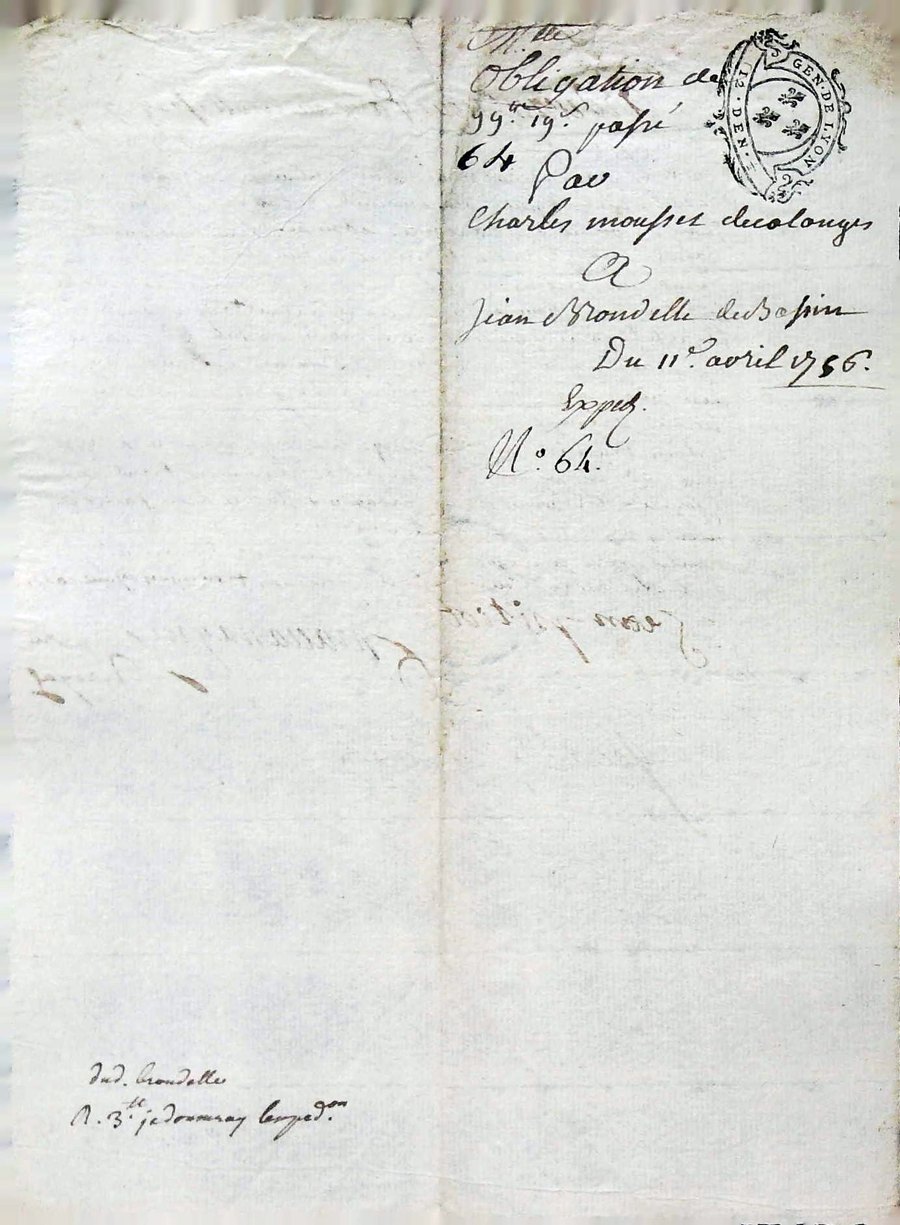 M.tte
Obligation de
99.tt 19.s passé
64
Par
Charles mousset decolonges
A
Jean Brondelle de Bassin
Du 11.e avril 1756.
Exped.
N.o 64.
GEN. DE LYON
12. DEN.
dud. brondelle
R. 3.tt je donneray lexped.on